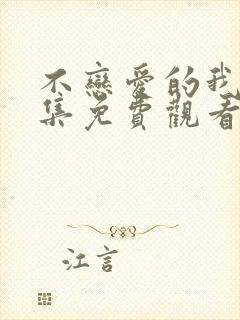 不戀愛的我
集免費觀看
江言